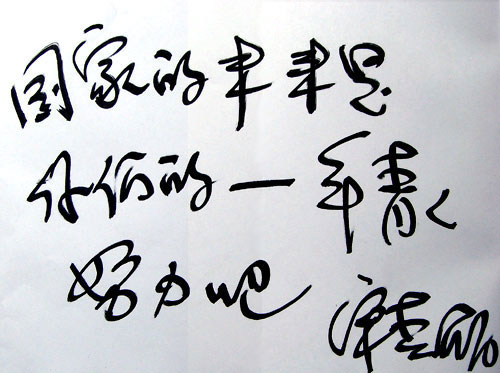 国家的未来是
你们的一年青人
努力吧